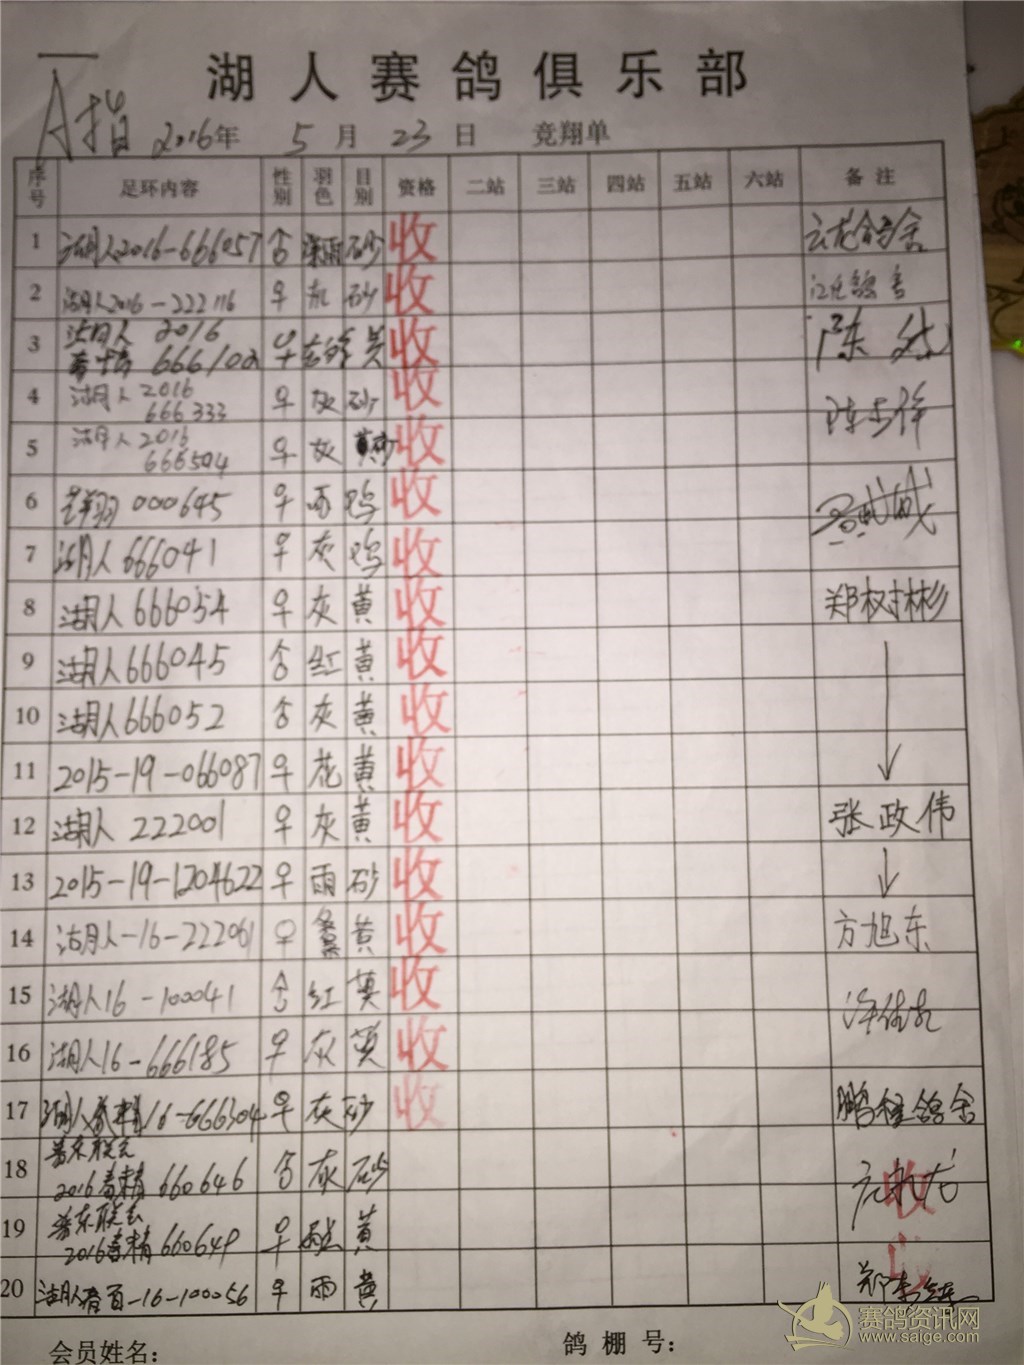 湖人赛鸽俱乐部
A指 2016年 5月 23日 竞翔单
序号 足环内容 性别 羽色 目别 资格 二站 三站 四站 五站 六站 备注
1 湖人2016-666057 合 深雨 砂 收 云龙鸽舍
2 湖人2016-222116 ♀ 灰 砂 收
3 湖人 2016 666102 ♀ 黄 收 陈
4 湖人 2016 666333 ♀ 灰 砂 收
5 湖人 2016 666504 ♀ 灰 收
6 翔 000645 ♀ 雨 鸡 收
7 湖人 666041 ♀ 灰 鸡 收
8 湖人 666054 ♀ 灰 黄 收 郑树彬
9 湖人 666045 合 红 黄 收
10 湖人 666052 合 灰 黄 收
11 2015-19-066087 ♀ 花 黄 收
12 湖人 222001 ♀ 灰 黄 收 张政伟
13 2015-19-1204622 ♀ 雨 砂 收
14 湖人-16-222061 ♀ 黄 收 方旭东
15 湖人16-100041 合 红 黄 收
16 湖人16-666185 ♀ 灰 黄 收
17 湖人 16-666304 ♀ 灰 砂 收 鹏程鸽舍
18 普东联会 2016春精 660646 合 灰 砂 收
19 普东联会 2016春精 660649 ♀ 黄
20 湖人春百-16-100056 ♀ 雨 黄
会员姓名： 鸽棚号：
赛鸽资讯网
www.saige.com